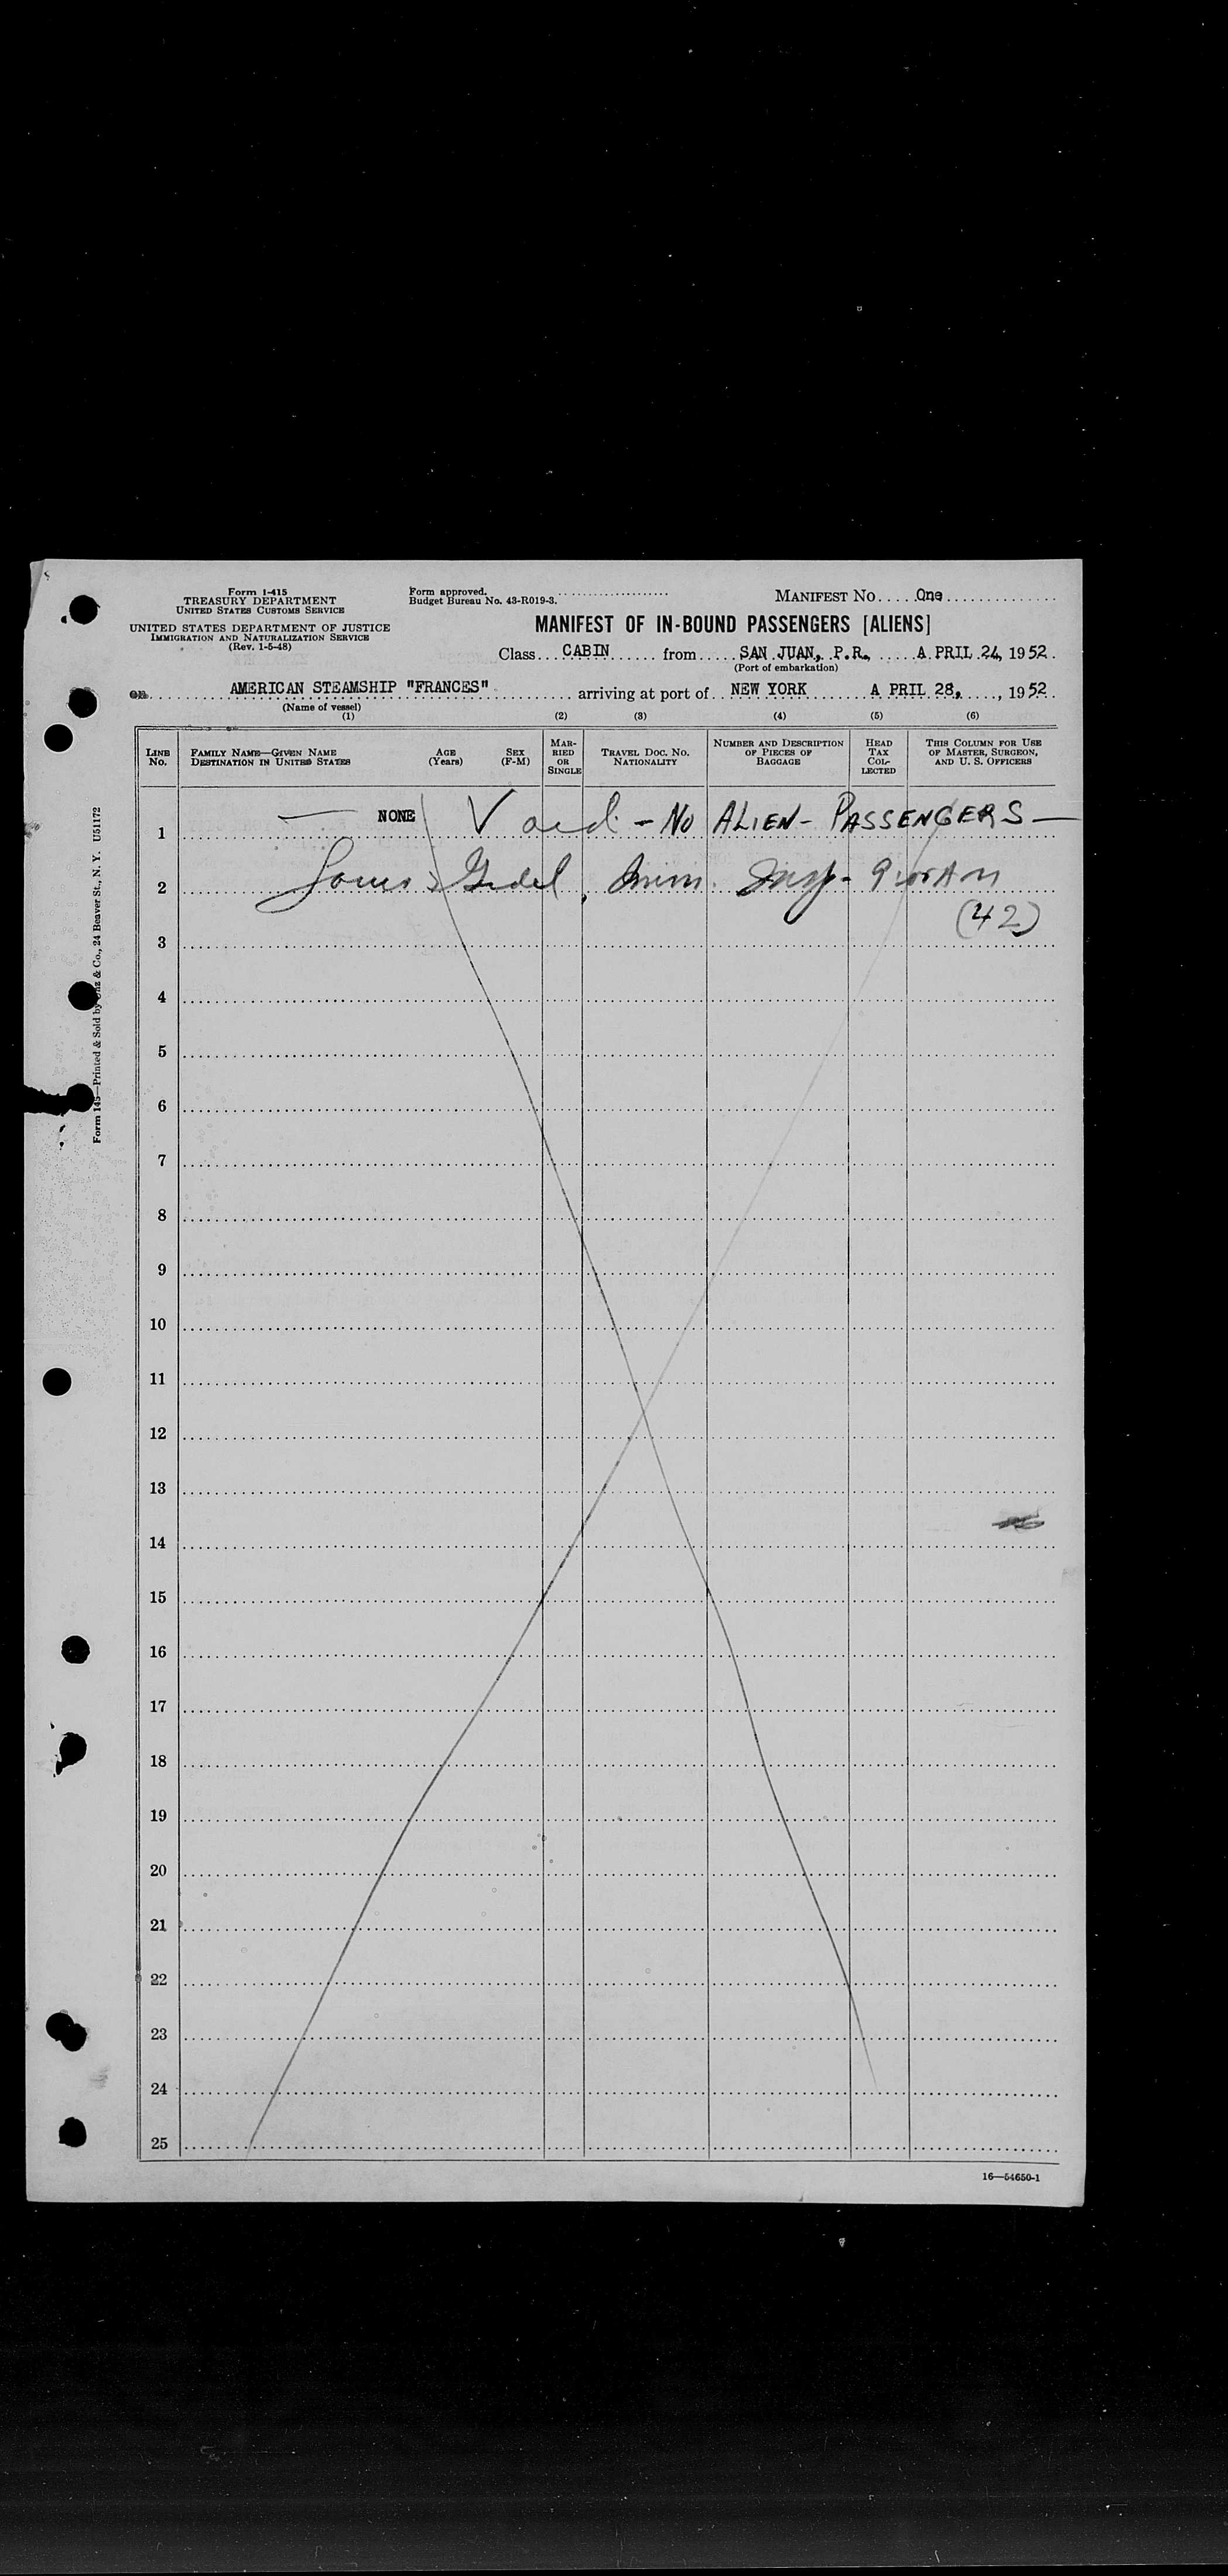 Form I-415
TREASURY DEPARTMENT
UNITED STATES CUSTOMS SERVICE
UNITED STATES DEPARTMENT OF JUSTICE
IMMIGRATION AND NATURALIZATION SERVICE
(Rev. 1-5-48)
Form approved.
Budget Bureau No. 43-R019-3.
MANIFEST NO. One
MANIFEST OF IN-BOUND PASSENGERS [ALIENS]
Class CABIN from SAN JUAN, P.R., A PRIL 24, 1952
(Port of embarkation)
on AMERICAN STEAMSHIP "FRANCES" arriving at port of NEW YORK A PRIL 28, , 1952
(Name of vessel)
(1) (2) (3) (4) (5) (6)
LINE NO. FAMILY NAME—GIVEN NAME DESTINATION IN UNITED STATES AGE (Years) SEX (F-M) MARRIED OR SINGLE TRAVEL DOC. NO. NATIONALITY NUMBER AND DESCRIPTION OF PIECES OF BAGGAGE HEAD TAX COLLECTED THIS COLUMN FOR USE OF MASTER, SURGEON, AND U. S. OFFICERS
1 — NONE Void - No ALIEN - PASSENGERS —
2 Imm. Insp -
(42)
3
4
5
6
7
8
9
10
11
12
13
14
15
16
17
18
19
20
21
22
23
24
25
16—54650-1
Form 145—Printed & Sold by & Co., 24 Beaver St., N. Y. U51172